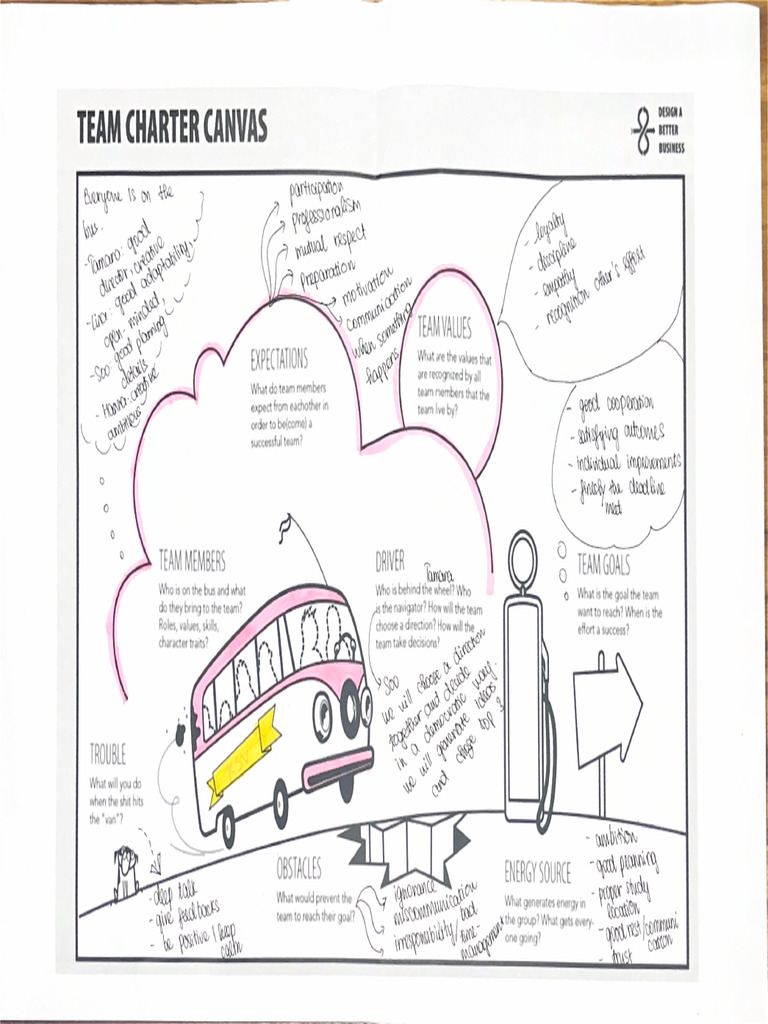 TEAM CHARTER CANVAS
DESIGN A
BETTER
BUSINESS
Everyone is on the
bus.
- Tamara: good
director, creative
good adaptability,
open-minded,
- Soo: good planning
details
creative
ambitious
participation
professionalism
mutual respect
preparation
motivation
communication
when something
happens
EXPECTATIONS
What do team members
expect from eachother in
order to be(come) a
successful team?
TEAM VALUES
What are the values that
are recognized by all
team members that the
team live by?
- loyalty
- discipline
- empathy
- recognition other's effort
- good cooperation
- satisfying outcomes
- individual improvements
- the deadline
TEAM GOALS
What is the goal the team
want to reach? When is the
effort a success?
TEAM MEMBERS
Who is on the bus and what
do they bring to the team?
Roles, values, skills,
character traits?
DRIVER
Tamara
Who is behind the wheel? Who
is the navigator? How will the team
choose a direction? How will the
team take decisions?
Soo
we will choose a direction
together and decide
in a democratic way.
we will generate ideas
and top 3
TROUBLE
What will you do
when the shit hits
the "van"?
- deep talk
- give feedbacks
- be positive / keep
OBSTACLES
What would prevent the
team to reach their goal?
ignorance
miscommunication
bad
time-
management
ENERGY SOURCE
What generates energy in
the group? What gets every-
one going?
- ambition
- good planning
- proper study
location
- good rest / communi
cation
- trust